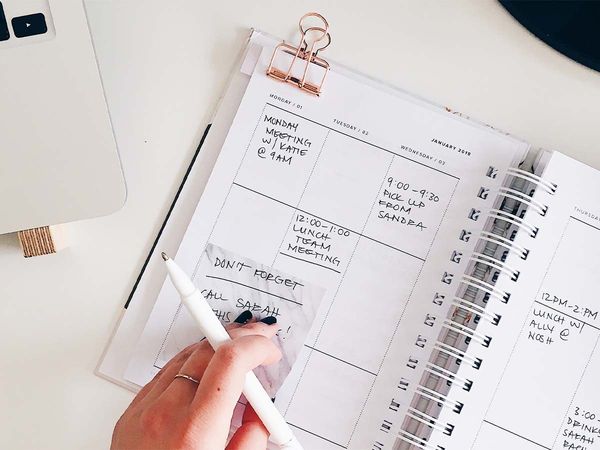 JANUARY 2018
MONDAY / 01
MONDAY
MEETING
W/ KATIE
@ 9AM
TUESDAY / 02
12:00-1:00
LUNCH
TEAM
MEETING
WEDNESDAY / 03
9:00-9:30
PICK UP
FROM
SANDRA
DON'T FORGET
CALL SARAH
THIS
!
THURSDAY
12PM-2PM
LUNCH W/
ALLY @
NOSH
3:00
SARAH